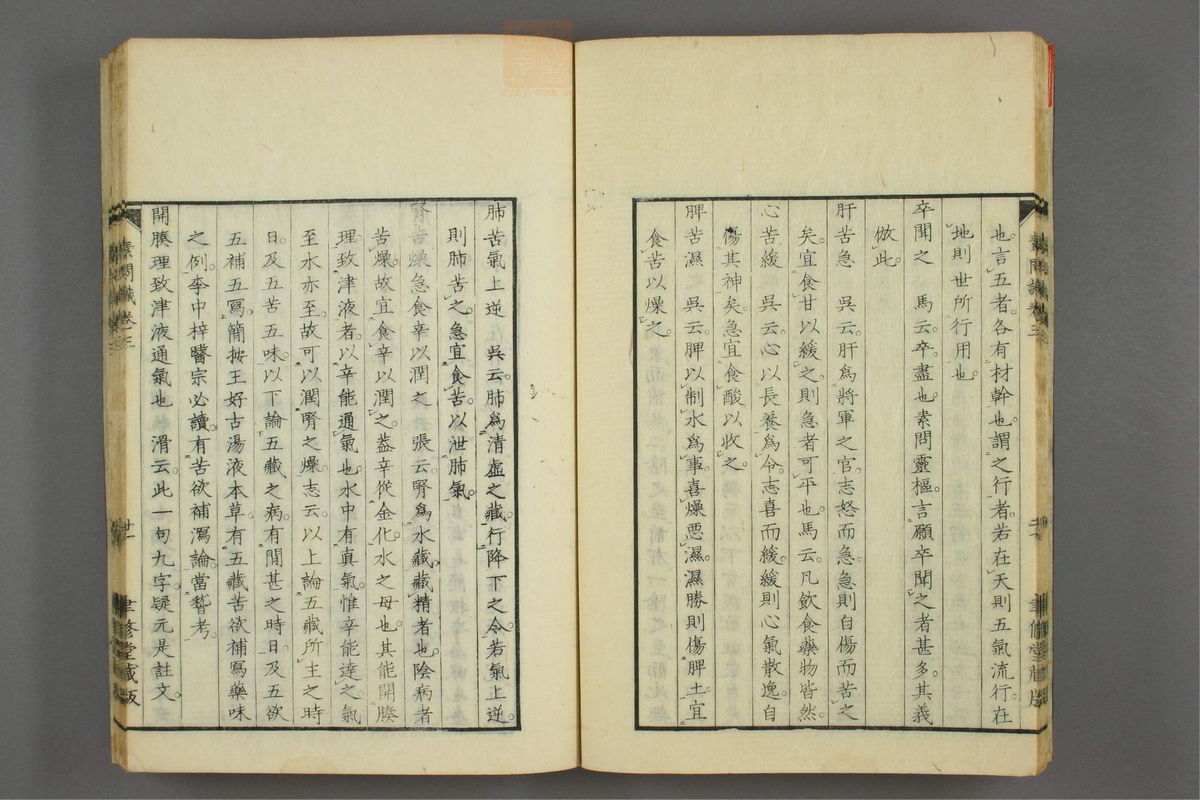 也言五者各有材幹也謂之行者若在天則五氣流行在
地則世所行用也
卒聞之　馬云卒盡也素問靈樞言願卒聞之者甚多其義
倣此
肝苦急　吳云肝爲將軍之官志怒而急急則自傷而苦之
矣宜食甘以緩之則急者可平也馬云凡飲食藥物皆然
心苦緩　吳云心以長養爲令志喜而緩緩則心氣散逸自
傷其神矣急宜食酸以收之
脾苦濕　吳云脾以制水爲事喜燥惡濕濕勝則傷脾土宜
食苦以燥之
素問識卷三
聿修堂藏版
肺苦氣上逆　吳云肺爲清虛之藏行降下之令若氣上逆
則肺苦之急宜食苦以泄肺氣
腎苦燥急食辛以潤之　張云腎爲水藏藏精者也陰病者
苦燥故宜食辛以潤之蓋辛從金化水之母也其能開腠
理致津液者以辛能通氣也水中有真氣惟辛能達之氣
至水亦至故可以潤腎之燥志云以上論五藏所主之時
日及五苦五味以下論五藏之病有閒甚之時日及五欲
五補五寫簡按王好古湯液本草有五藏苦欲補寫藥味
之例李中梓醫宗必讀有苦欲補瀉論當䅲考
開腠理致津液通氣也　滑云此一句九字疑元是註文
素問識卷三
世一
聿修堂藏版